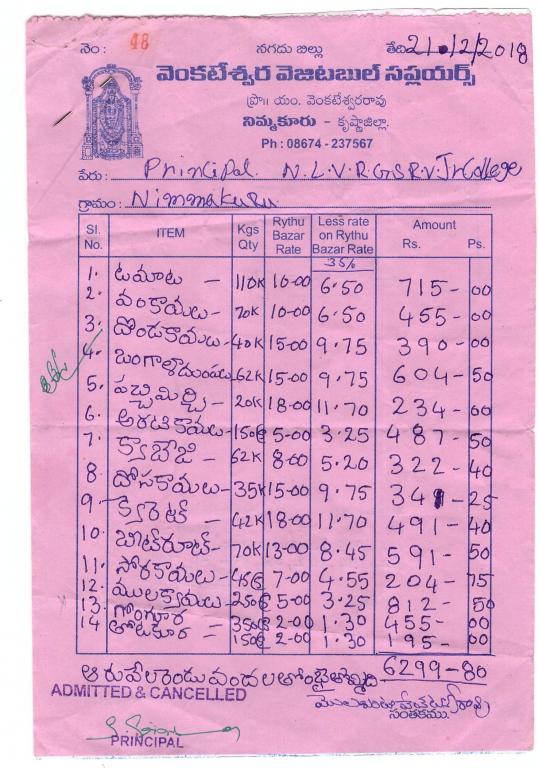 నెం: 48 నగదు బిల్లు తేది 21/12/2018
వెంకటేశ్వర వెజిటబుల్ సప్లయర్స్
ప్రొ॥ యం. వెంకటేశ్వరరావు
నిమ్మకూరు - కృష్ణాజిల్లా.
Ph : 08674 - 237567
పేరు: Principal. N.L.V.R.G.S.R.V.Jr College
గ్రామం: Nimmakuru
Sl. No. ITEM Kgs Qty Rythu Bazar Rate Less rate on Rythu Bazar Rate Amount Rs. Ps.
35%
1. టమాట - 110K 10-00 6.50 715-00
2. వంకాయలు - 70K 10-00 6.50 455-00
3. దొండకాయలు - 40K 15-00 9.75 390-00
4. బంగాళాదుంపలు 62K 15-00 9.75 604-50
5. పచ్చిమిర్చి - 20K 18-00 11.70 234-00
6. అరటికాయలు - 150 5-00 3.25 487-50
7. క్యాబేజి - 62K 8-00 5.20 322-40
8. దోసకాయలు - 35K 15-00 9.75 341-25
9. క్యారెట్ - 42K 18-00 11.70 491-40
10. బీట్‌రూట్ - 70K 13-00 8.45 591-50
11. సోరకాయలు - 45 7-00 4.55 204-75
12. ములక్కాయలు - 250 5-00 3.25 812-50
13. గోంగూర 350 2-00 1.30 455-00
14 తోటకూర 150 2-00 1.30 195-00
6299-80
ఆరువేలరెండువందలతొంబైతొమ్మిది
ADMITTED & CANCELLED
సంతకము.
PRINCIPAL